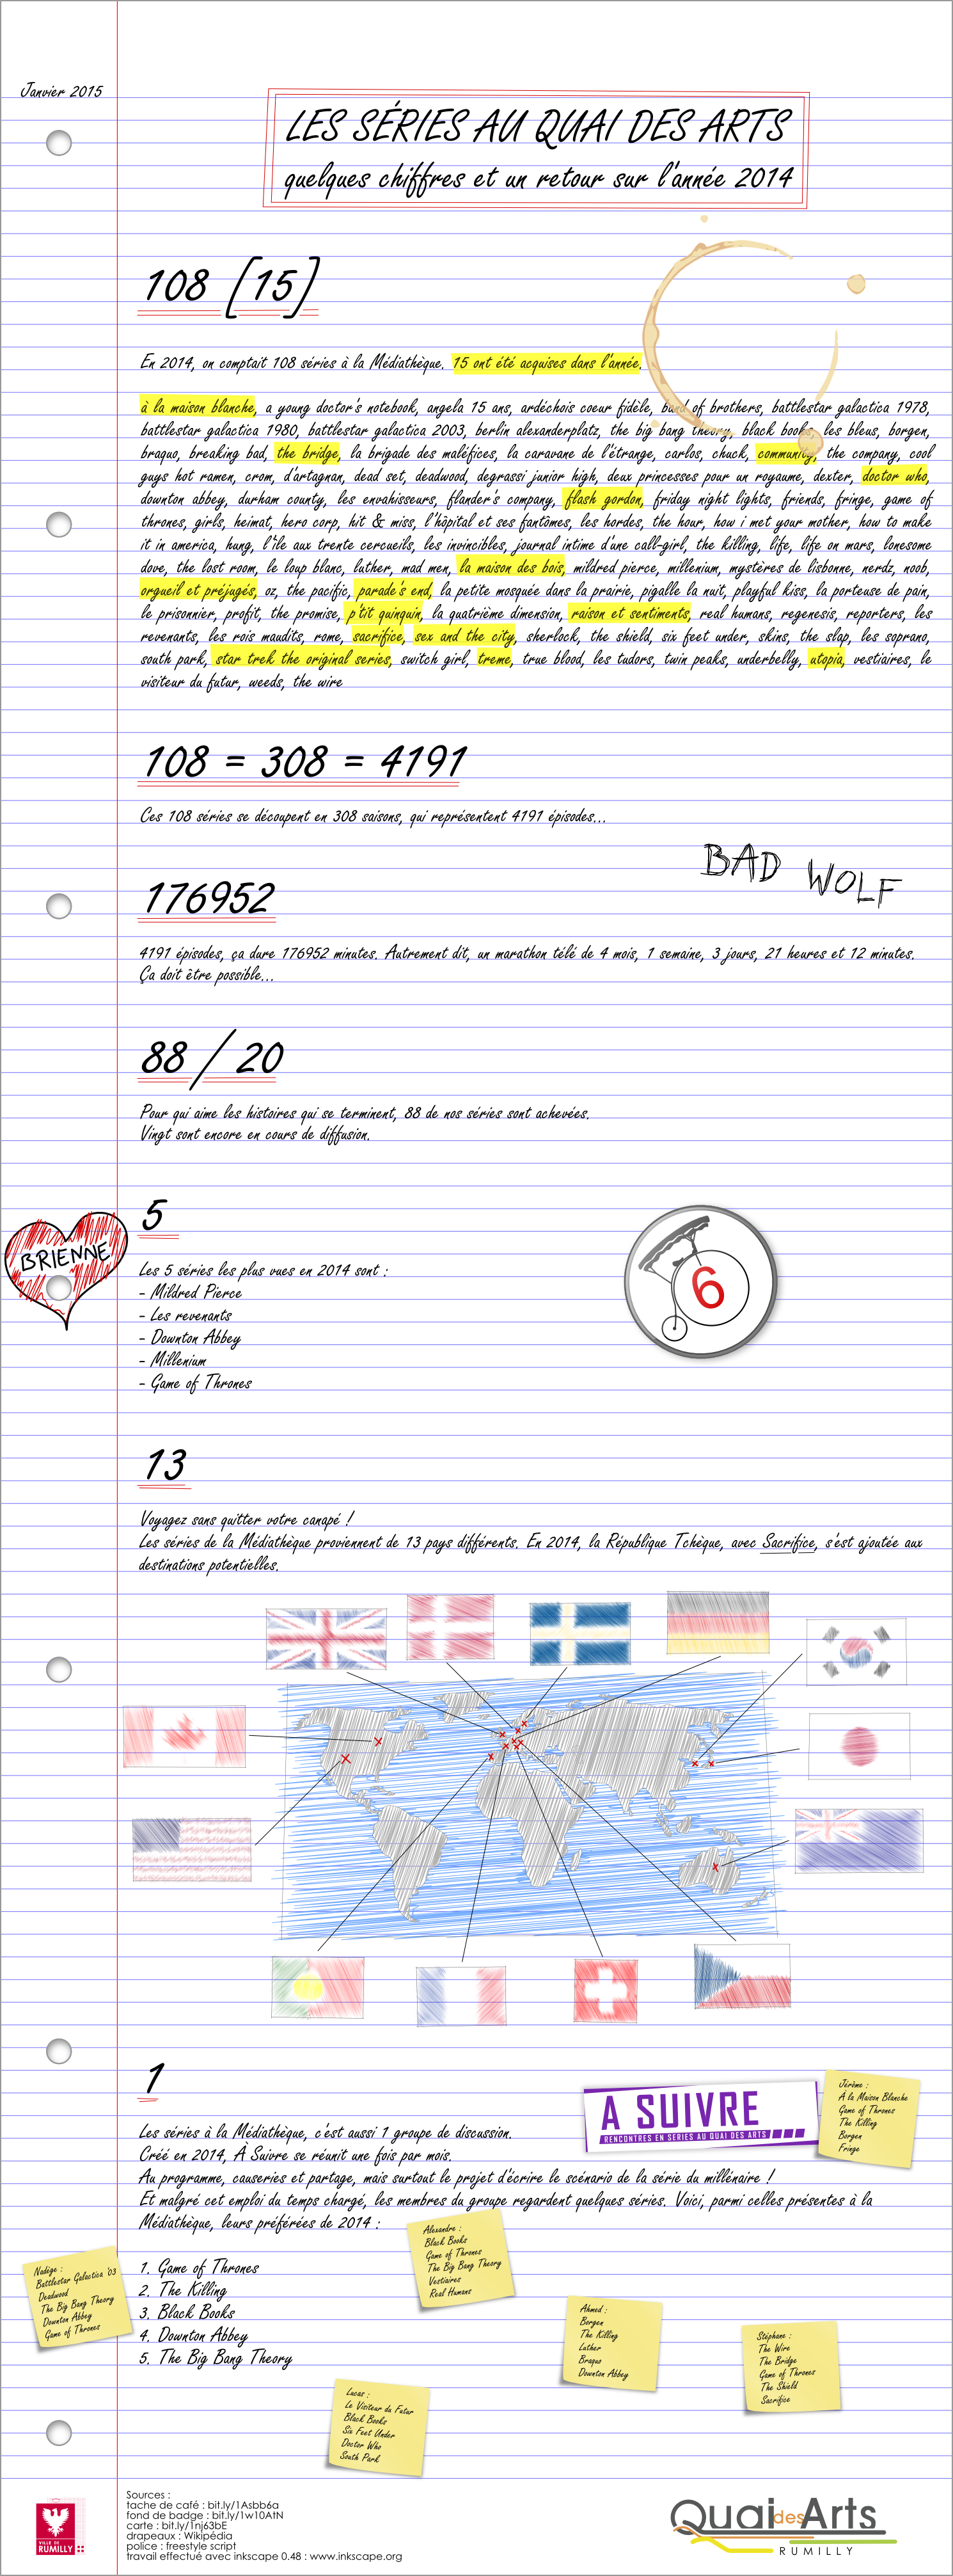 Janvier 2015
LES SÉRIES AU QUAI DES ARTS
quelques chiffres et un retour sur l'année 2014
108 (15)
En 2014, on comptait 108 séries à la Médiathèque. 15 ont été acquises dans l'année.
à la maison blanche, a young doctor's notebook, angela 15 ans, ardéchois coeur fidèle, band of brothers, battlestar galactica 1978,
battlestar galactica 1980, battlestar galactica 2003, berlin alexanderplatz, the big bang theory, black books, les bleus, borgen,
braquo, breaking bad, the bridge, la brigade des maléfices, la caravane de l'étrange, carlos, chuck, community, the company, cool
guys hot ramen, crom, d'artagnan, dead set, deadwood, degrassi junior high, deux princesses pour un royaume, dexter, doctor who,
downton abbey, durham county, les envahisseurs, flander's company, flash gordon, friday night lights, friends, fringe, game of
thrones, girls, heimat, hero corp, hit & miss, l'hôpital et ses fantômes, les hordes, the hour, how i met your mother, how to make
it in america, hung, l'île aux trente cercueils, les invincibles, journal intime d'une call-girl, the killing, life, life on mars, lonesome
dove, the lost room, le loup blanc, luther, mad men, la maison des bois, mildred pierce, millenium, mystères de lisbonne, nerdz, noob,
orgueil et préjugés, oz, the pacific, parade's end, la petite mosquée dans la prairie, pigalle la nuit, playful kiss, la porteuse de pain,
le prisonnier, profit, the promise, p'tit quinquin, la quatrième dimension, raison et sentiments, real humans, regenesis, reporters, les
revenants, les rois maudits, rome, sacrifice, sex and the city, sherlock, the shield, six feet under, skins, the slap, les soprano,
south park, star trek the original series, switch girl, treme, true blood, les tudors, twin peaks, underbelly, utopia, vestiaires, le
visiteur du futur, weeds, the wire
108 = 308 = 4191
Ces 108 séries se découpent en 308 saisons, qui représentent 4191 épisodes...
BAD WOLF
176952
4191 épisodes, ça dure 176952 minutes. Autrement dit, un marathon télé de 4 mois, 1 semaine, 3 jours, 21 heures et 12 minutes.
Ça doit être possible...
88 / 20
Pour qui aime les histoires qui se terminent, 88 de nos séries sont achevées.
Vingt sont encore en cours de diffusion.
BRIENNE
5
6
Les 5 séries les plus vues en 2014 sont :
- Mildred Pierce
- Les revenants
- Downton Abbey
- Millenium
- Game of Thrones
13
Voyagez sans quitter votre canapé !
Les séries de la Médiathèque proviennent de 13 pays différents. En 2014, la République Tchèque, avec Sacrifice, s'est ajoutée aux
destinations potentielles.
1
A SUIVRE
RENCONTRES EN SERIES AU QUAI DES ARTS
Jérôme :
A la Maison Blanche
Game of Thrones
The Killing
Borgen
Fringe
Les séries à la Médiathèque, c'est aussi 1 groupe de discussion.
Créé en 2014, À Suivre se réunit une fois par mois.
Au programme, causeries et partage, mais surtout le projet d'écrire le scénario de la série du millénaire !
Et malgré cet emploi du temps chargé, les membres du groupe regardent quelques séries. Voici, parmi celles présentes à la
Médiathèque, leurs préférées de 2014 :
Alexandre :
Black Books
Game of Thrones
The Big Bang Theory
Vestiaires
Real Humans
Nadège :
Battlestar Galactica '03
Deadwood
The Big Bang Theory
Downton Abbey
Game of Thrones
1. Game of Thrones
2. The Killing
3. Black Books
4. Downton Abbey
5. The Big Bang Theory
Ahmed :
Borgen
The Killing
Luther
Braquo
Downton Abbey
Stéphane :
The Wire
The Bridge
Game of Thrones
The Shield
Sacrifice
Lucas :
Le Visiteur du Futur
Black Books
Six Feet Under
Doctor Who
South Park
VILLE DE
RUMILLY
Sources :
tache de café : bit.ly/1Asbb6a
fond de badge : bit.ly/1w10AtN
carte : bit.ly/1nj63bE
drapeaux : Wikipédia
police : freestyle script
travail effectué avec inkscape 0.48 : www.inkscape.org
Quai des Arts
RUMILLY